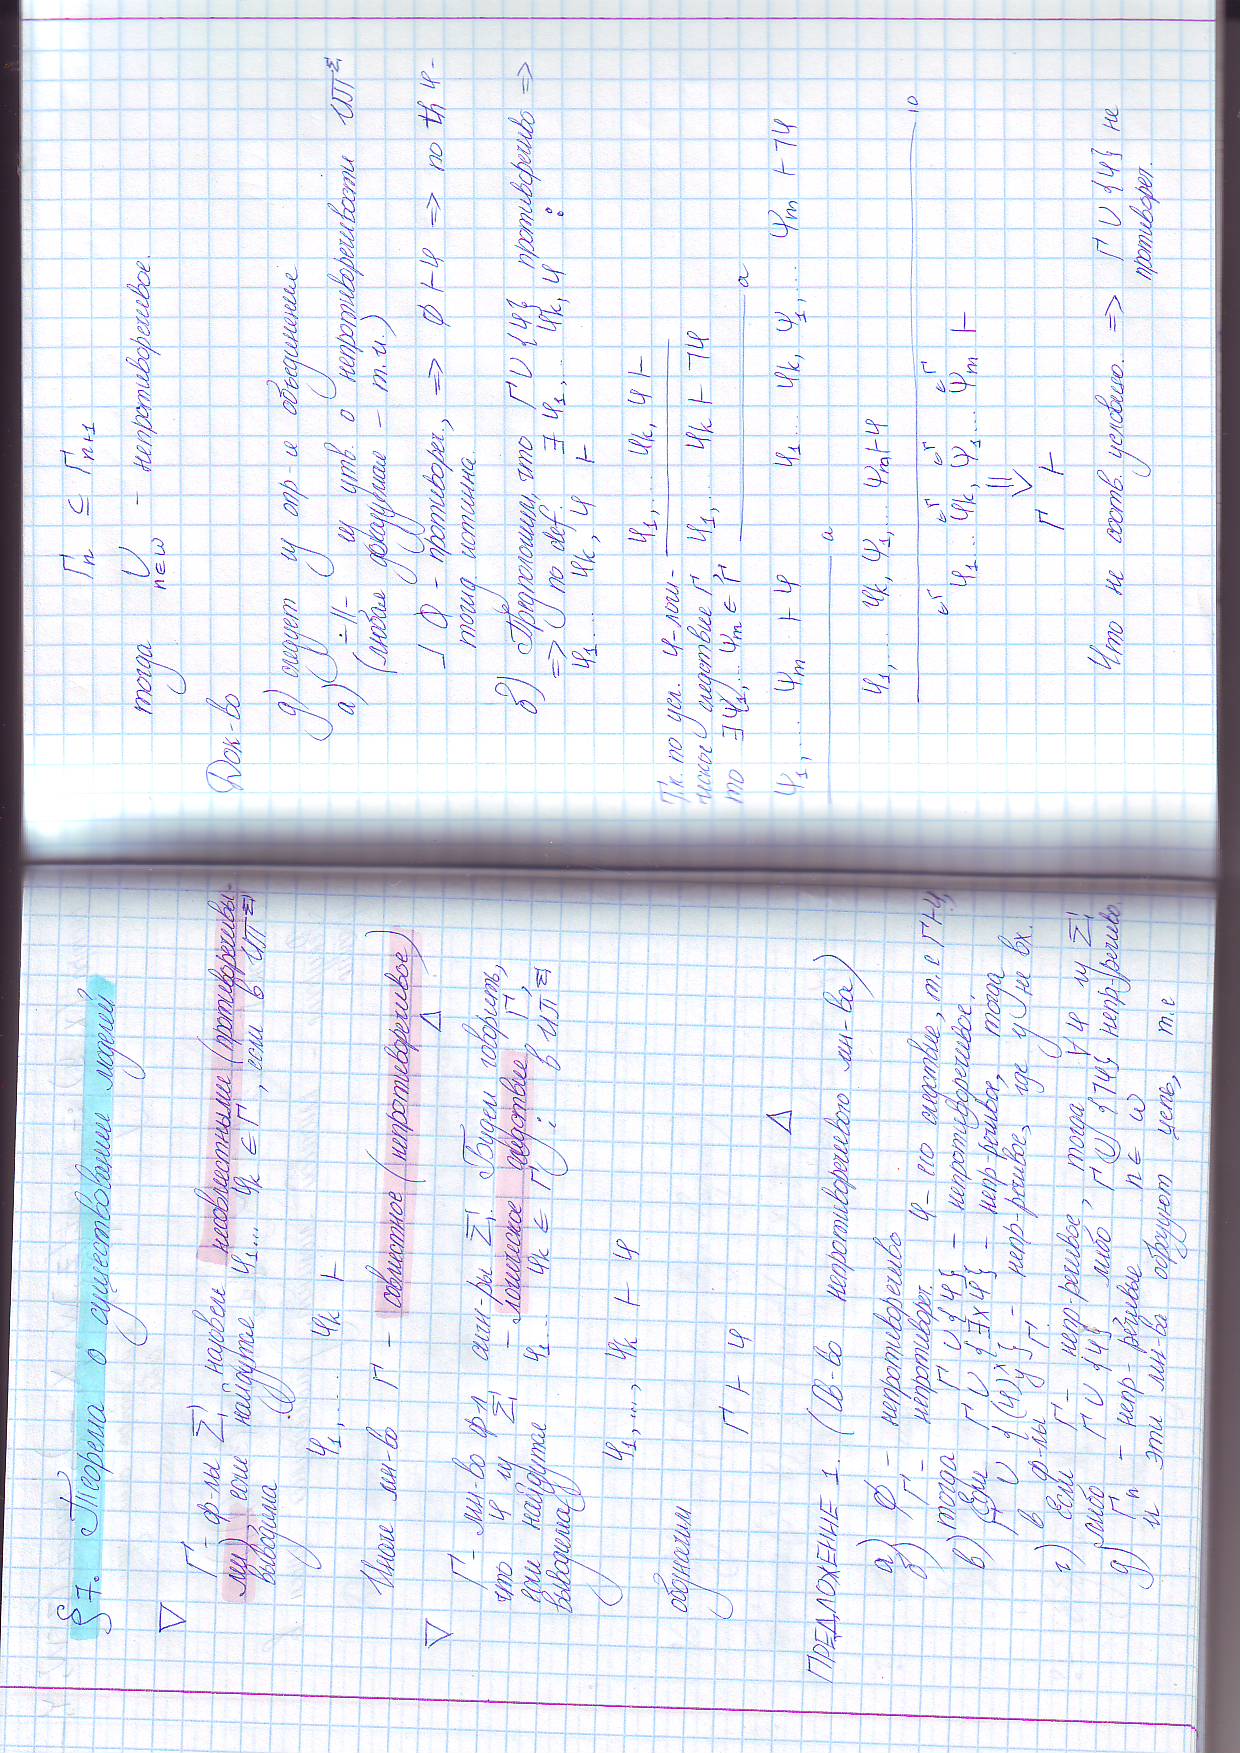 § 7. Теорема о существовании моделей
▽ Γ - ф-лы Σ, назовем несовместными (противоречивы-
ми), если найдутся φ₁... φₖ ∈ Γ, если в ИПΣ
выводима
φ₁, .... φₖ ⊢
Иначе мн-во Γ - совместное (непротиворечивое)
△
▽ Γ - мн-во ф-л сигн-ры Σ. Будем говорить,
что φ из Σ - логическое следствие Γ,
если найдутся φ₁.... φₖ ∈ Γ; в ИПΣ
выводима
φ₁,..., φₖ ⊢ φ
обозначим Γ ⊢ φ
△
ПРЕДЛОЖЕНИЕ 1. (Св-во непротиворечивого мн-ва)
а) ∅ - непротиворечиво
б) Γ - непротивореч. φ - его следствие, т.е Γ ⊢ φ,
тогда Γ ∪ {φ} - непротиворечивое.
в) Если Γ ∪ {∃xφ} - непр речивое, тогда
Γ ∪ {(φ)ˣᵧ} - непр-речивое, где y не вх.
в ф-лы Γ
г) Если Γ - непр-речивое, тогда ∀ φ из Σ
либо Γ ∪ {φ} либо Γ ∪ {¬φ} непр-речиво.
д) Γₙ - непр-речивые n ∈ ω
и эти мн-ва образуют цепь, т.е
Γₙ ⊆ Γₙ₊₁
тогда ∪ n∈ω - непротиворечивое.
Док-во
д) следует из опр-ие объединение
а) -//- из утв. о непротиворечивости ИПΣ
(любая доказуемая - т.и.)
⊥ ∅ - противореч., => ∅ ⊢ φ => по th φ-
тожд. истинна.
б) Предположим, что Γ ∪ {φ} противоречиво =>
=> по def. ∃ φ₁,.... φₖ, φ :
φ₁.... φₖ, φ ⊢
Т.к. по усл. φ-логи-
ческое следствие Γ
то ∃ ψ₁,... ψₘ ∈ Γ
φ₁,.... φₖ, φ ⊢
φ₁,.... φₖ ⊢ ¬φ
а
ψ₁,.... ψₘ ⊢ φ φ₁.... φₖ, ψ₁,.... ψₘ ⊢ ¬φ
а
φ₁,.... φₖ, ψ₁,.... ψₘ ⊢ φ
10
φ₁.... φₖ, ψ₁.... ψₘ ⊢
Γ ⊢
Что не соотв. условию. => Γ ∪ {φ} не
противореч.